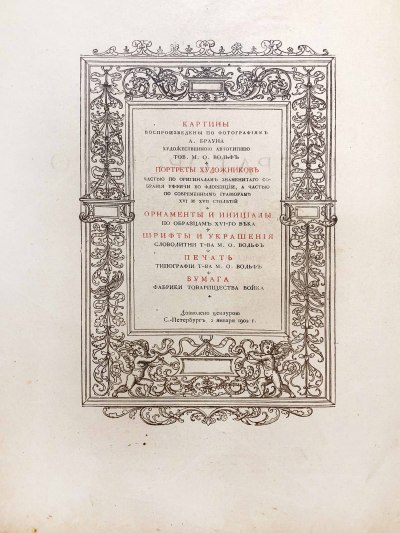 КАРТИНЫ
ВОСПРОИЗВЕДЕНЫ ПО ФОТОГРАФІЯМЪ
А. БРАУНА
ХУДОЖЕСТВЕННОЮ АВТОТИПІЕЮ
ТОВ. М. О. ВОЛЬФЪ
ПОРТРЕТЫ ХУДОЖНИКОВЪ
ЧАСТЬЮ ПО ОРИГИНАЛАМЪ ЗНАМЕНИТАГО СО-
БРАНІЯ УФФИЧИ ВО ФЛОРЕНЦІИ, А ЧАСТЬЮ
ПО СОВРЕМЕННЫМЪ ГРАВЮРАМЪ
XVI И XVII СТОЛѢТІЙ
ОРНАМЕНТЫ И ИНИЦІАЛЫ
ПО ОБРАЗЦАМЪ XVI-ГО ВѢКА
ШРИФТЫ И УКРАШЕНІЯ
СЛОВОЛИТНИ Т-ВА М. О. ВОЛЬФЪ
ПЕЧАТЬ
ТИПОГРАФІИ Т-ВА М. О. ВОЛЬФЪ
БУМАГА
ФАБРИКИ ТОВАРИЩЕСТВА ВОЙКА
Дозволено цензурою
С.-Петербургъ 2 января 1902 г.